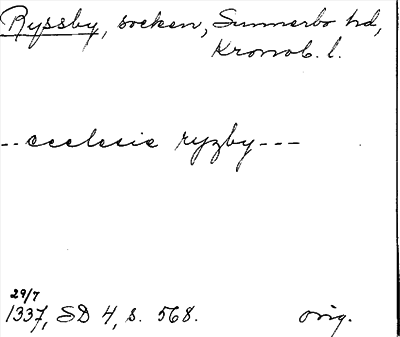 Ryssby, socken, Sunnerbo hd,
Kronob. l.
-- ecclesie ryzby ---
29/7
1337, SD 4, s. 568. orig.